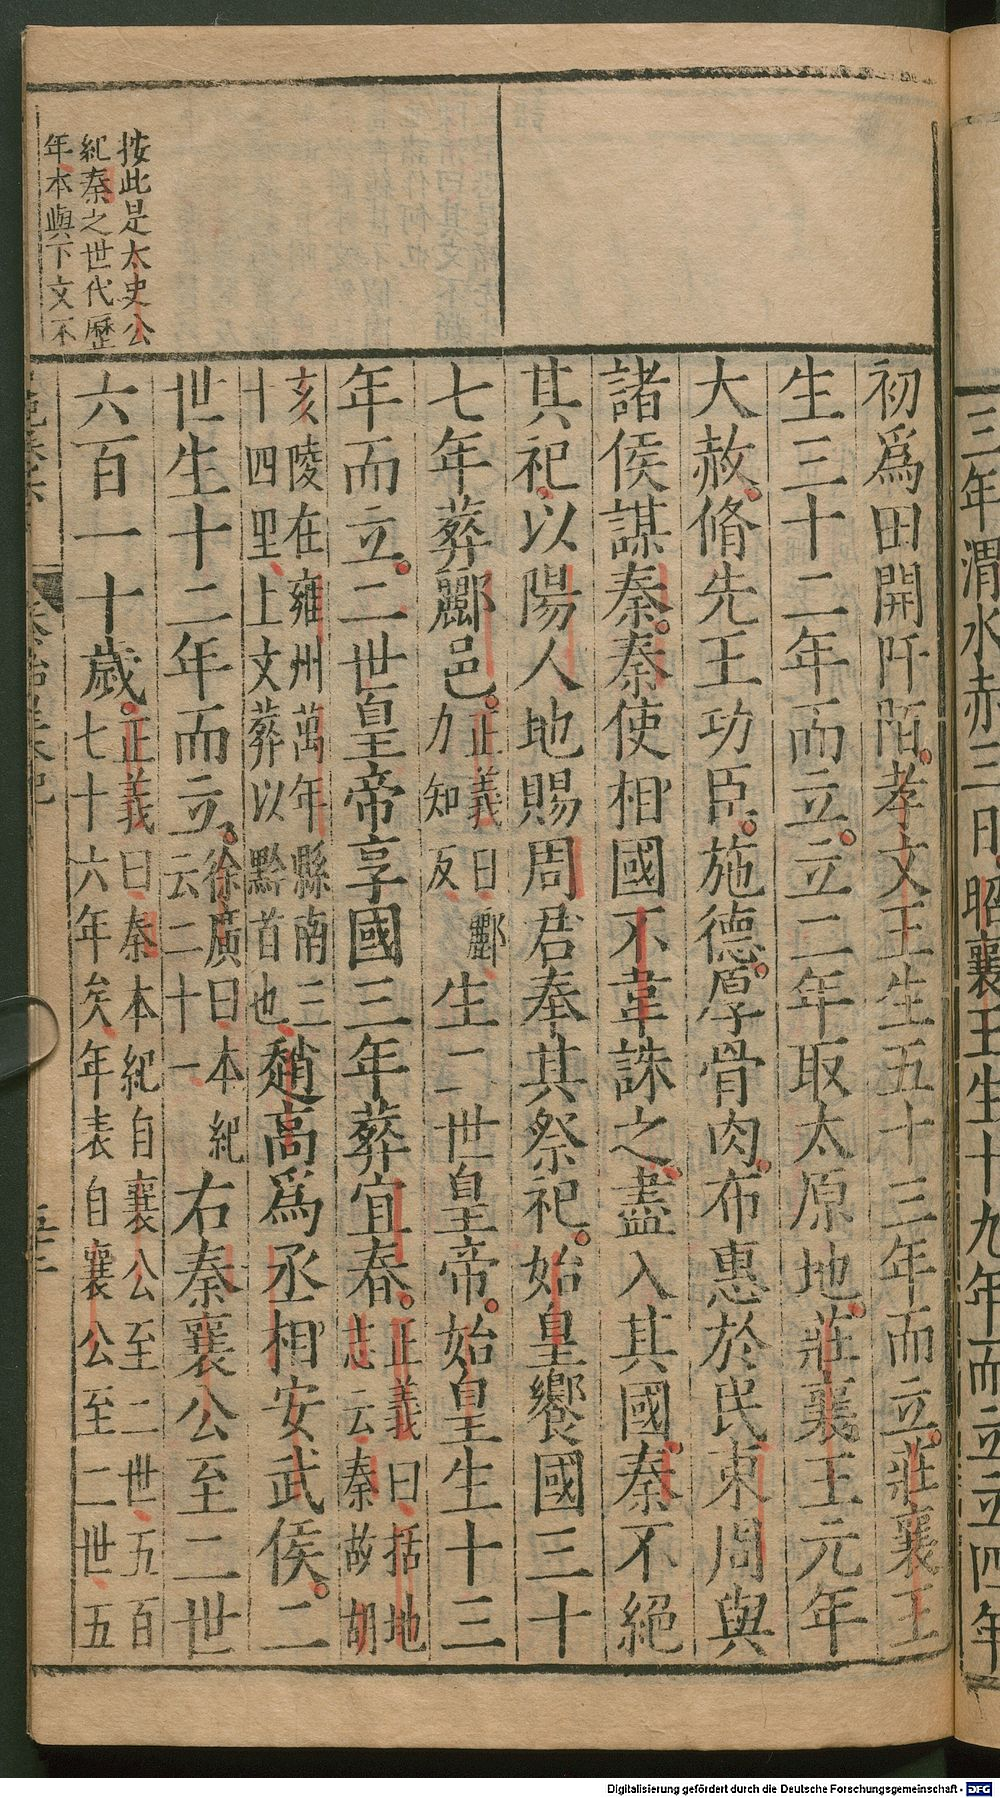 三年渭水赤三日昭襄王生十九年而立立四年
初爲田開阡陌孝文王生五十三年而立莊襄王
生三十二年而立立二年取太原地莊襄王元年
大赦脩先王功臣施德厚骨肉布惠於民東周與
諸侯謀秦秦使相國不韋誅之盡入其國秦不絕
其祀以陽人地賜周君奉其祭祀始皇饗國三十
七年葬酈邑正義曰酈力知反生二世皇帝始皇生十三
年而立二世皇帝享國三年葬宜春正義曰括地志云秦故胡
亥陵在雍州萬年縣南三十四里上文葬以黔首也趙高爲丞相安武侯二
世生十二年而立徐廣曰本紀云二十一右秦襄公至二世
六百一十歲正義曰秦本紀自襄公至二世五百七十六年矣年表自襄公至二世五
按此是太史公
紀秦之世代歷
年本與下文不
Digitalisierung gefördert durch die Deutsche Forschungsgemeinschaft - DFG